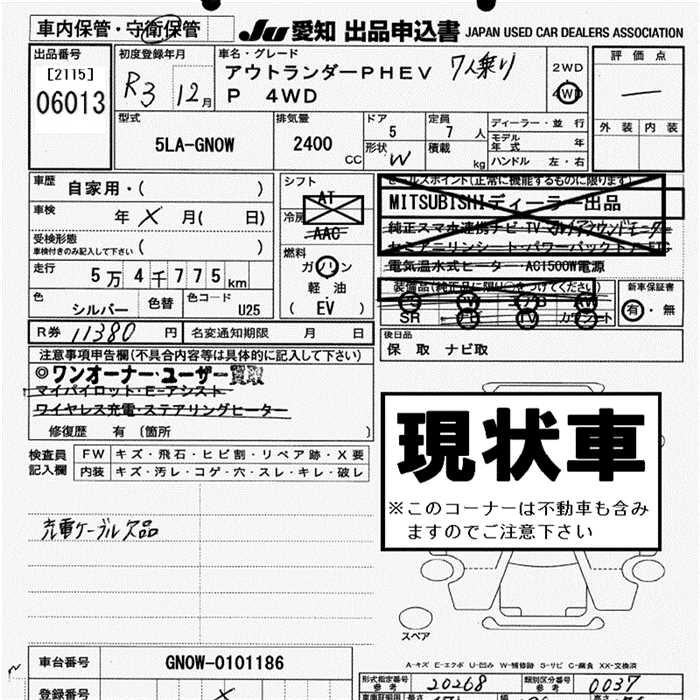 車内保管・守衛保管
Ju 愛知 出品申込書 JAPAN USED CAR DEALERS ASSOCIATION
出品番号
[2115]
06013
初度登録年月
R3 12月
車名・グレード
アウトランダーPHEV 7人乗り
P 4WD
2WD
4WD
評価点
外装 内装
型式
5LA-GN0W
排気量
2400 CC
ドア
5
形状 W
定員
7 人
積載 kg
ディーラー・並行
モデル年式 年
ハンドル 左・右
車歴 自家用・( )
車検 年 × 月( 日)
受検形態
車検付きのみ記入して下さい ( )
走行 5万4千775km
色 シルバー 色替 色コード U25
R券 11380 円 名変通知期限 月 日
シフト
AT
冷房
AAC
燃料
ガソリン
軽・油
( EV )
セールスポイント(正常に機能するものに限ります)
MITSUBISHIディーラー出品
純正スマホ連携ナビ・TV
セミアニリンシート・パワーバックドア・ETC
電気温水式ヒーター・AC1500W電源
装備品(純正品に限り○をつけてください)
PS PW エアB AW
SR ナビ TV カワシート
新車保証書
有・無
後日品
保 取 ナビ取
注意事項申告欄(不具合内容等は具体的に記入して下さい)
◎ワンオーナー・ユーザー買取
マイパイロット・E-アシスト
ワイヤレス充電・ステアリングヒーター
修復歴 有 (箇所 )
検査員記入欄
FW キズ・飛石・ヒビ割・リペア跡・X要
内装 キズ・汚レ・コゲ・穴・スレ・キレ・破レ
充電ケーブル欠品
現状車
※このコーナーは不動車も含みますのでご注意下さい
スペア
A-キズ E-エクボ U-凹み W-補修跡 S-サビ C-腐食 XX-交換済
車台番号 GN0W-0101186
登録番号 ×
形式指定番号 参考 20268
類別区分番号 参考 0037